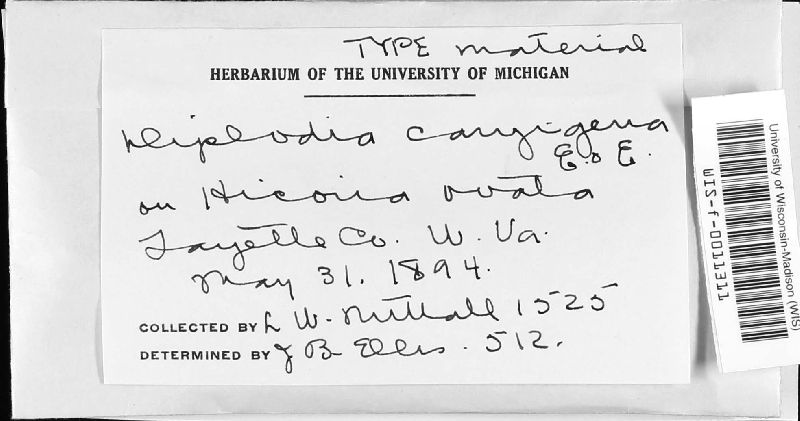 TYPE material
HERBARIUM OF THE UNIVERSITY OF MICHIGAN
Diplodia caryigena
E. & E.
on Hicoria ovata
Fayette Co. W. Va.
May 31. 1894.
COLLECTED BY L. W. Nuttall 1525
DETERMINED BY J B Ellis. 512.
University of Wisconsin-Madison (WIS)
WIS-f-0011311